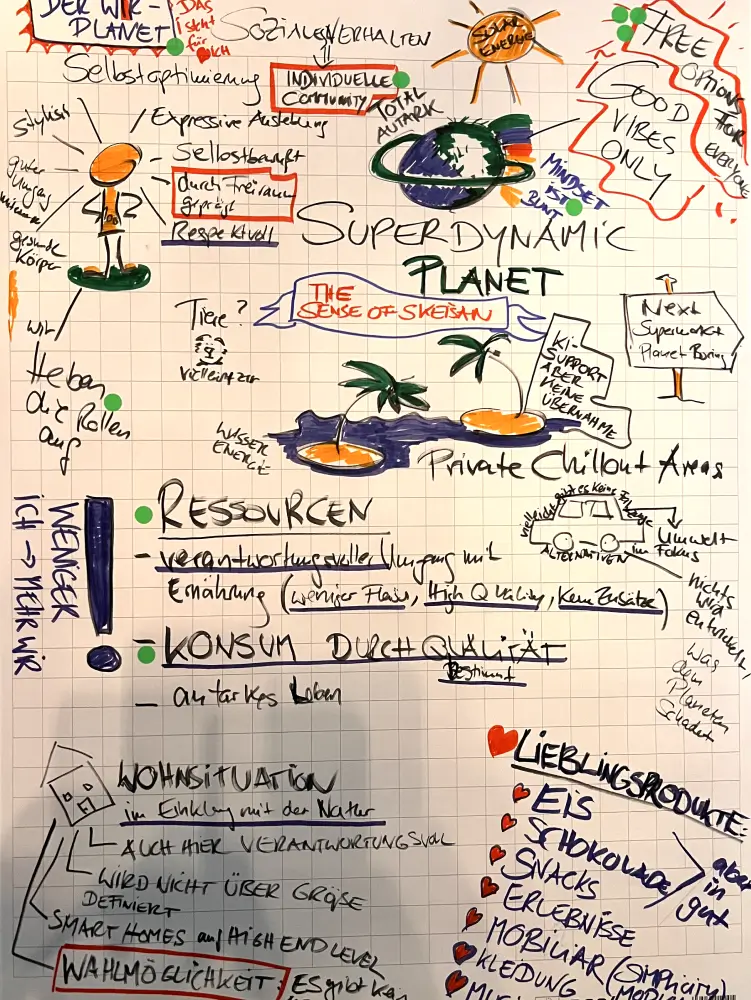 DER WIR-
PLANET
DAS
ist
für
SOZIALENVERHALTEN
SOLAR
ENERGIE
FREE
OPTIONS
FOR
EVERYONE
GOOD
VIBES
ONLY
Selbstoptimierung
INDIVIDUELLE
COMMUNITY
TOTAL
AUTARK
stylish
Expressive Ausstehung
Selbstbewußt
durch Freiraum
geprägt
Respektvoll
guter
Umgang
gesunde
Körper
MINDSET
IST
BUNT
SUPERDYNAMIC
PLANET
THE
SENSE OF SKEISAN
Tiere?
vielleicht
Next
Supermarkt
Planet Boring
KI-
SUPPORT
ABER
KEINE
ÜBERNAHME
wir
Heben
die Rollen
auf
WASSER
ENERGIE
Private Chillout Areas
WENIGER
ICH → MEHR WIR
!
RESSOURCEN
- verantwortungsvoller Umgang mit
Ernährung (weniger Flaisc, High Quality, kein Zusätze)
- KONSUM DURCH QUALITÄT
Bestimmt
- autarkes Leben
vielleicht gibt es keine
ALTERNATIVEN
Umwelt
im Fokus
nichts
wird
entwickelt,
was
dem
Planeten
Schadet
WOHNSITUATION
im Einklang mit der Natur
AUCH HIER VERANTWORTUNGSVOLL
WIRD NICHT ÜBER GRÖßE
DEFINIERT
SMART HOMES auf HIGH END LEVEL
WAHLMÖGLICHKEIT: ES gibt kein
LIEBLINGSPRODUKTE:
EIS
SCHOKOLADE
SNACKS
ERLEBNISSE
MOBILIAR (SIMPLICITY)
KLEIDUNG
aber
in
gut